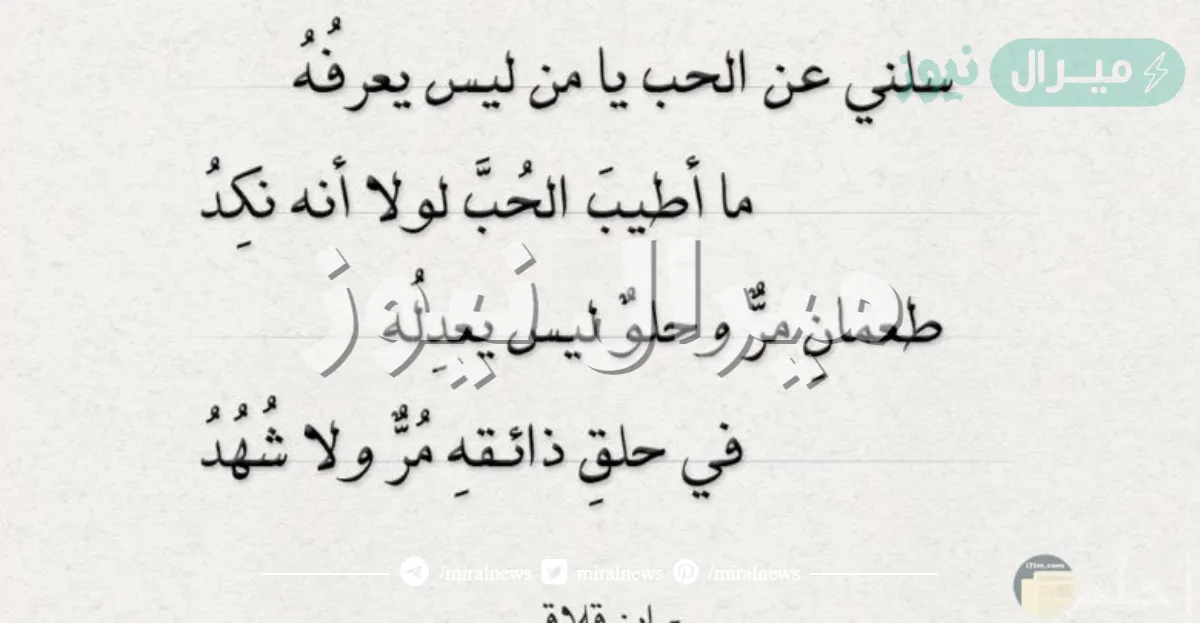 ميرال نيوز
سلني عن الحب يا من ليس يعرفُهُ
ما أطيبَ الحُبَّ لولا أنه نكِدُ
ميرال نيوز
طعمانِ مرٌّ وحلوٌ ليس يعدِلُه
في حلقِ ذائقهِ مُرٌّ ولا شُهُدُ
/miralnews /miralnews /miralnews
i7lm.com
احلم
- ابن قلاقس